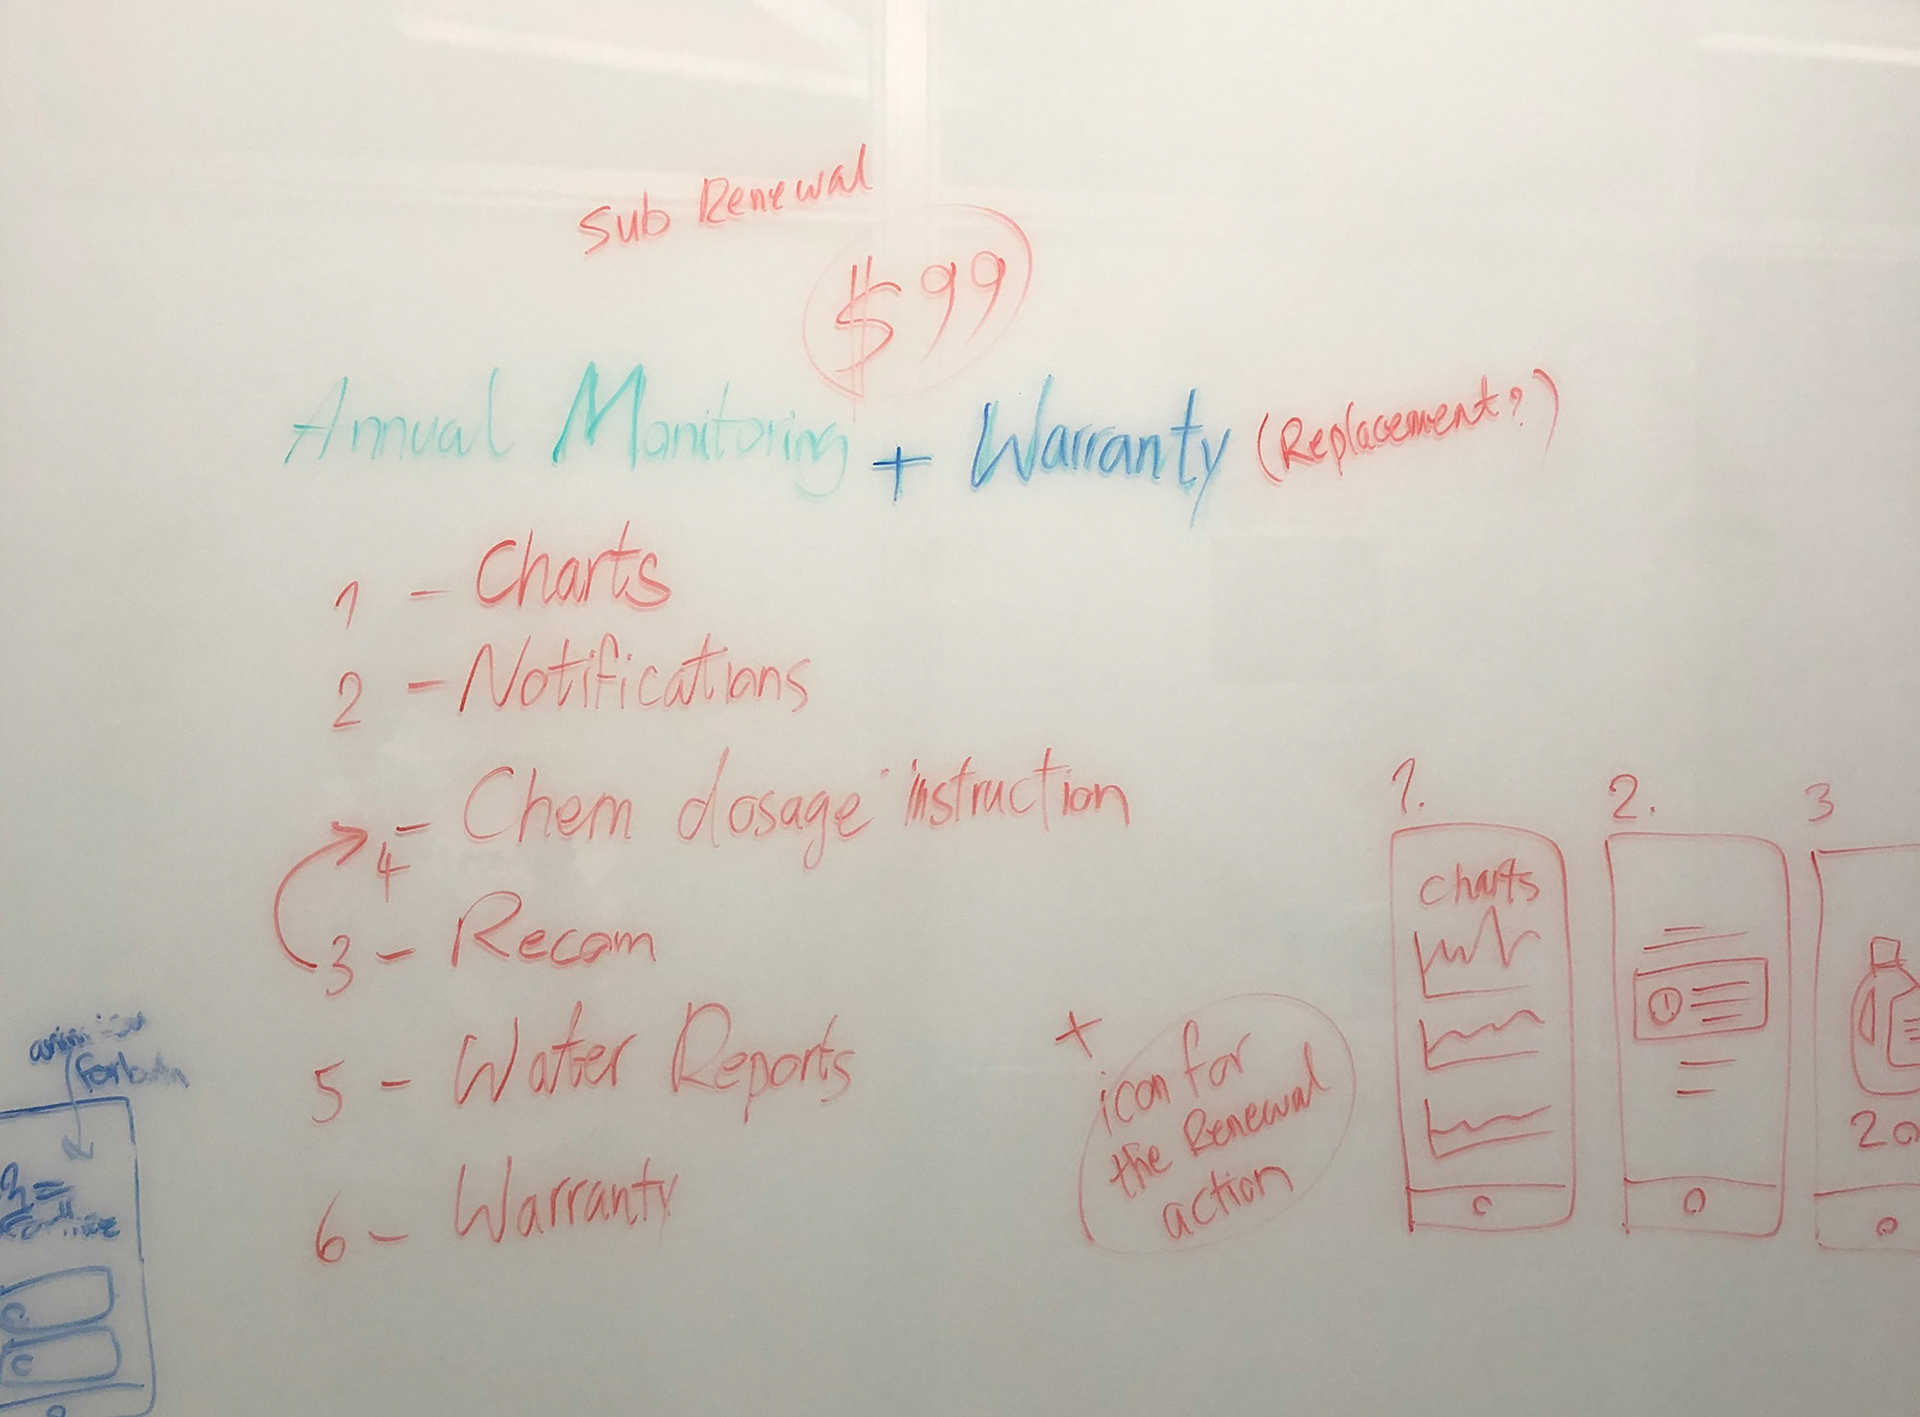 Sub Renewal
$99
Annual Monitoring + Warranty (Replacement?)
1 - Charts
2 - Notifications
4 - Chem dosage instruction
3 - Recom
5 - Water Reports
6 - Warranty
+
icon for
the Renewal
action
1.
Charts
2.
!
3